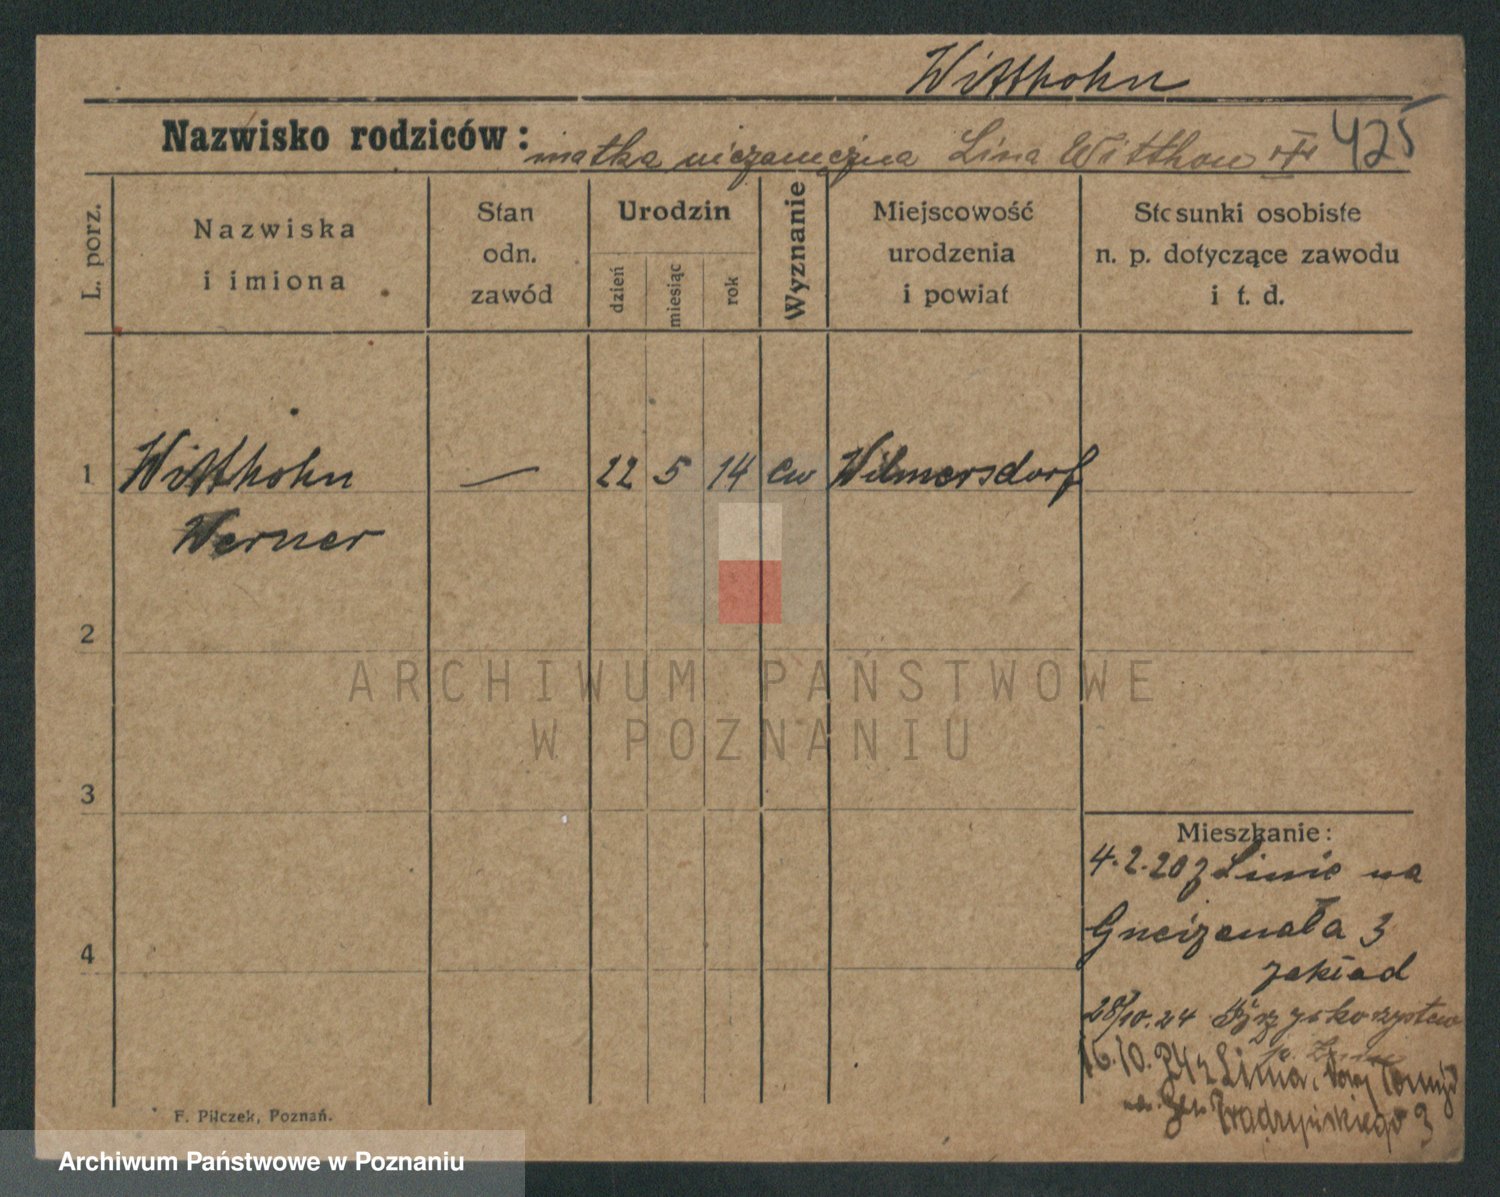 Witthohn
Nazwisko rodziców: matka niezamężna Lina Witthon 425
L. porz.
Nazwiska
i imiona
Stan
odn.
zawód
Urodzin
dzień
miesiąc
rok
Wyznanie
Miejscowość
urodzenia
i powiat
Stosunki osobiste
n. p. dotyczące zawodu
i t. d.
1 Witthohn — 22 5 14 ew Wilmersdorf
Werner
2
ARCHIWUM PAŃSTWOWE
W POZNANIU
3
Mieszkanie:
4.2.20 z Linie na
Gneizenała 3
4
zakład
28/10.24
16.10.24 z Linia, Nowy Tomyśl
Prądzyńskiego 3
F. Pilczek, Poznań.
Archiwum Państwowe w Poznaniu